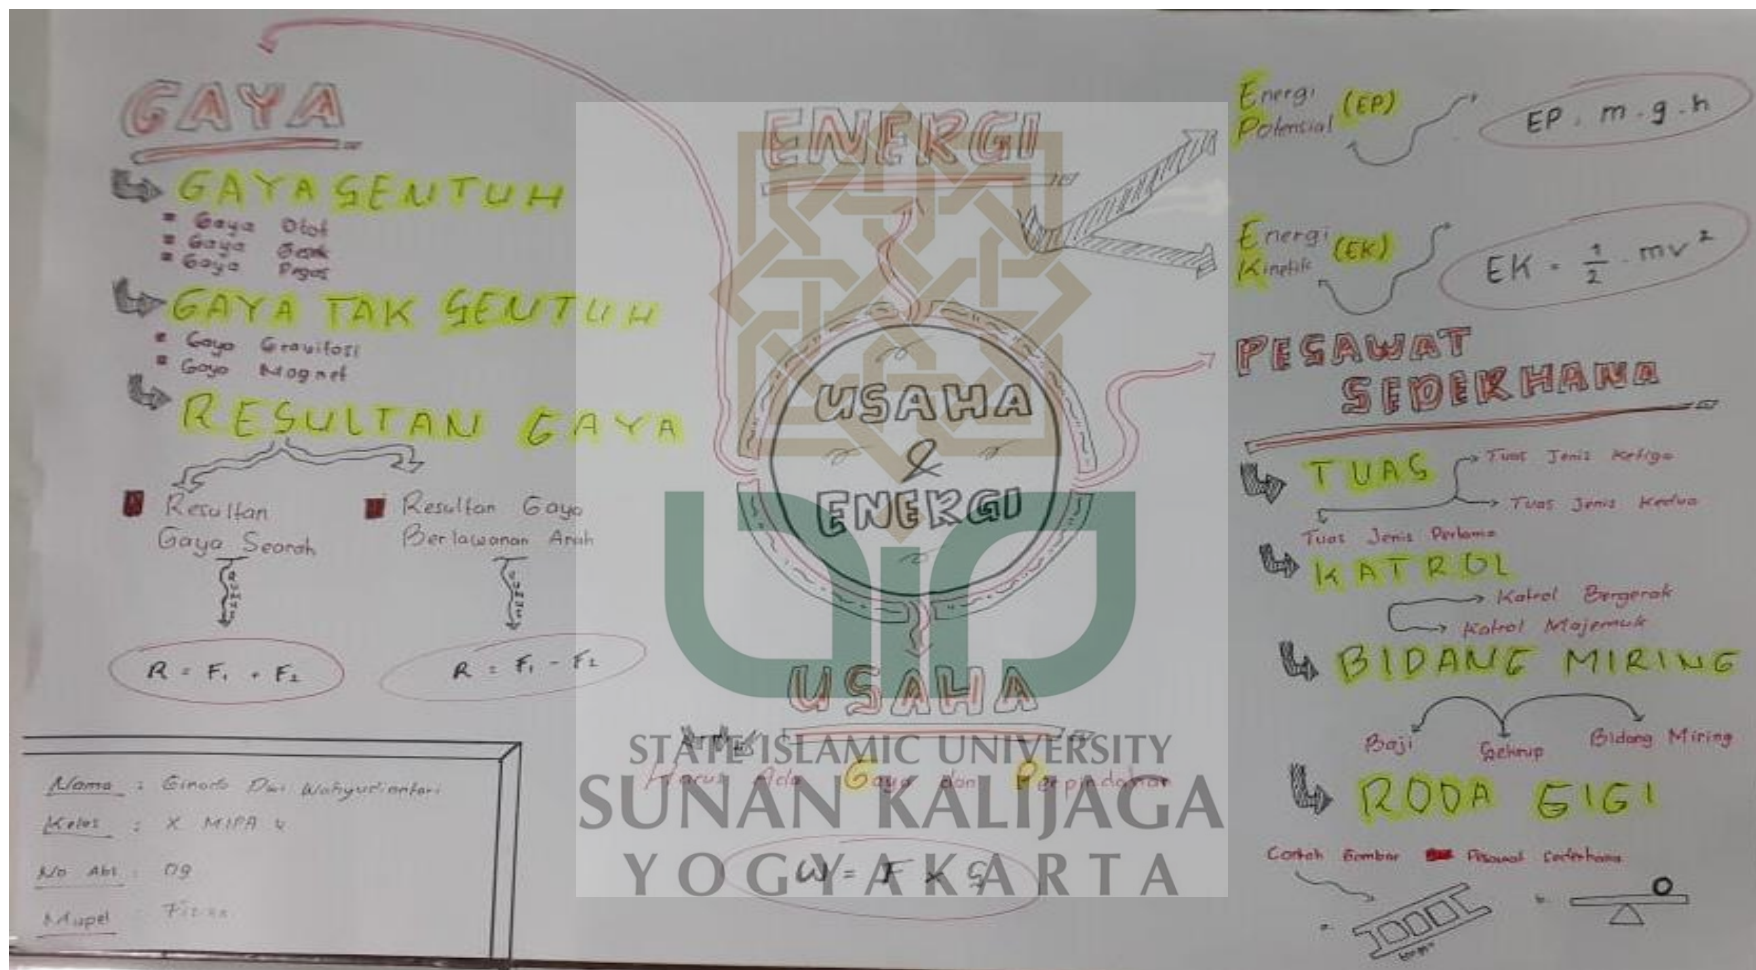 GAYA
GAYA SENTUH
Gaya Otot
Gaya Gesek
Gaya Pegas
GAYA TAK SENTUH
Gaya Gravitasi
Gaya Magnet
RESULTAN GAYA
Resultan
Gaya Searah
R = F1 + F2
Resultan Gaya
Berlawanan Arah
R = F1 - F2
Nama :
Kelas : X MIPA 4
No Abs : 09
Mapel : Fisika
ENERGI
USAHA
&
ENERGI
USAHA
Harus Ada Gaya dan Perpindahan
W = F x S
STATE ISLAMIC UNIVERSITY
SUNAN KALIJAGA
YOGYAKARTA
Energi
Potensial (EP)
EP = m . g . h
Energi
Kinetik (EK)
EK = 1/2 . mv²
PESAWAT
SEDERHANA
TUAS
Tuas Jenis Ketiga
Tuas Jenis Kedua
Tuas Jenis Pertama
KATROL
Katrol Bergerak
Katrol Majemuk
BIDANG MIRING
Baji
Sekrup
Bidang Miring
RODA GIGI
Contoh Gambar Pesawat Sederhana
a.
b.